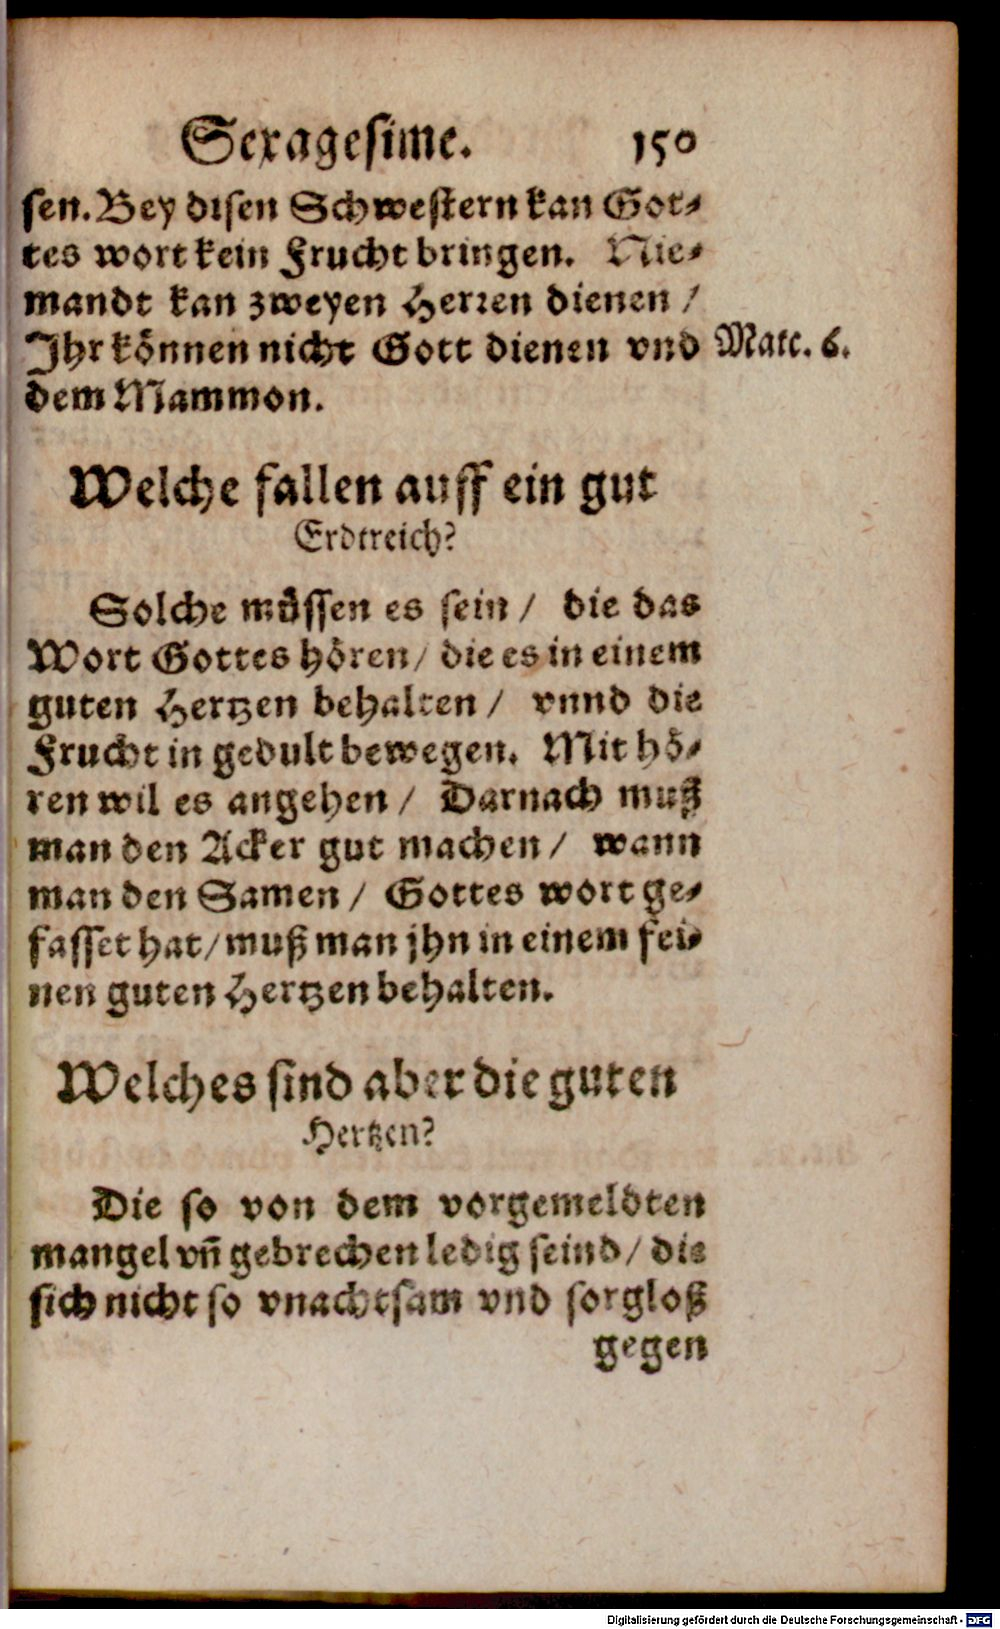 Sexagesime. 150
sen. Bey disen Schwestern kan Got⸗
tes wort kein Frucht bringen. Nie⸗
mandt kan zweyen Herꝛen dienen /
Jhr können nicht Gott dienen vnd Matt. 6.
dem Mammon.
Welche fallen auff ein gut
Erdtreich?
Solche müssen es sein / die das
Wort Gottes hören / die es in einem
guten Hertzen behalten / vnnd die
Frucht in gedult bewegen. Mit hö⸗
ren wil es angehen / Darnach muß
man den Acker gut machen / wann
man den Samen / Gottes wort ge⸗
fasset hat / muß man jhn in einem fei⸗
nen guten Hertzen behalten.
Welches sind aber die guten
Hertzen?
Die so von dem vorgemeldten
mangel vñ gebrechen ledig seind / die
sich nicht so vnachtsam vnd sorgloß
gegen
Digitalisierung gefördert durch die Deutsche Forschungsgemeinschaft - DFG